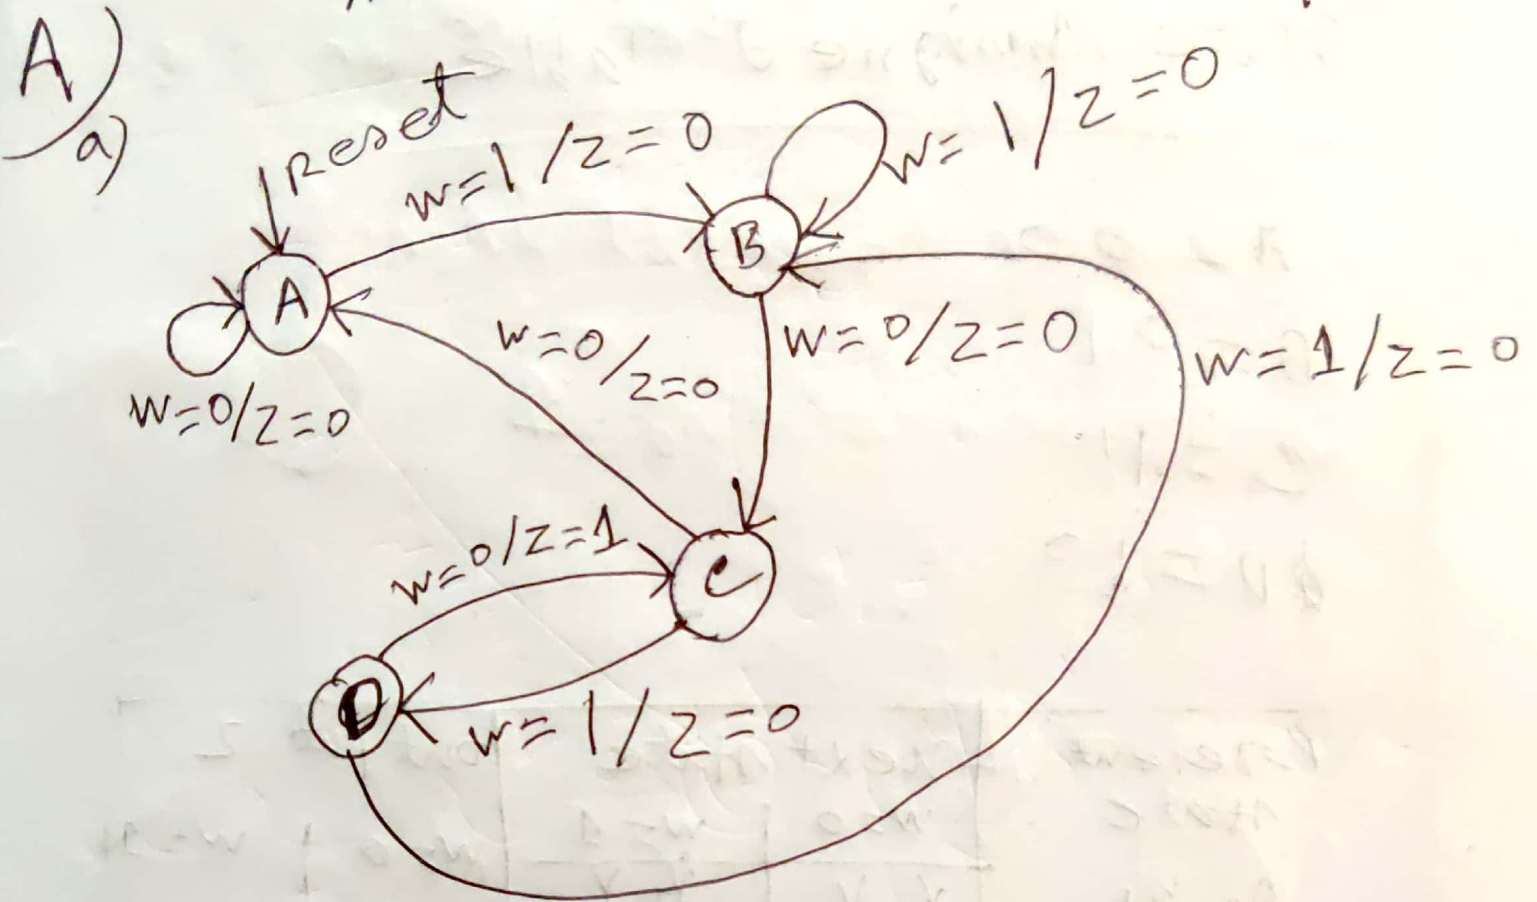 A)
a)
reset
w=1/z=0
w=1/z=0
B
A
w=0/z=0
w=0/z=0
w=0/z=0
w=1/z=0
w=0/z=1
C
D
w=1/z=0